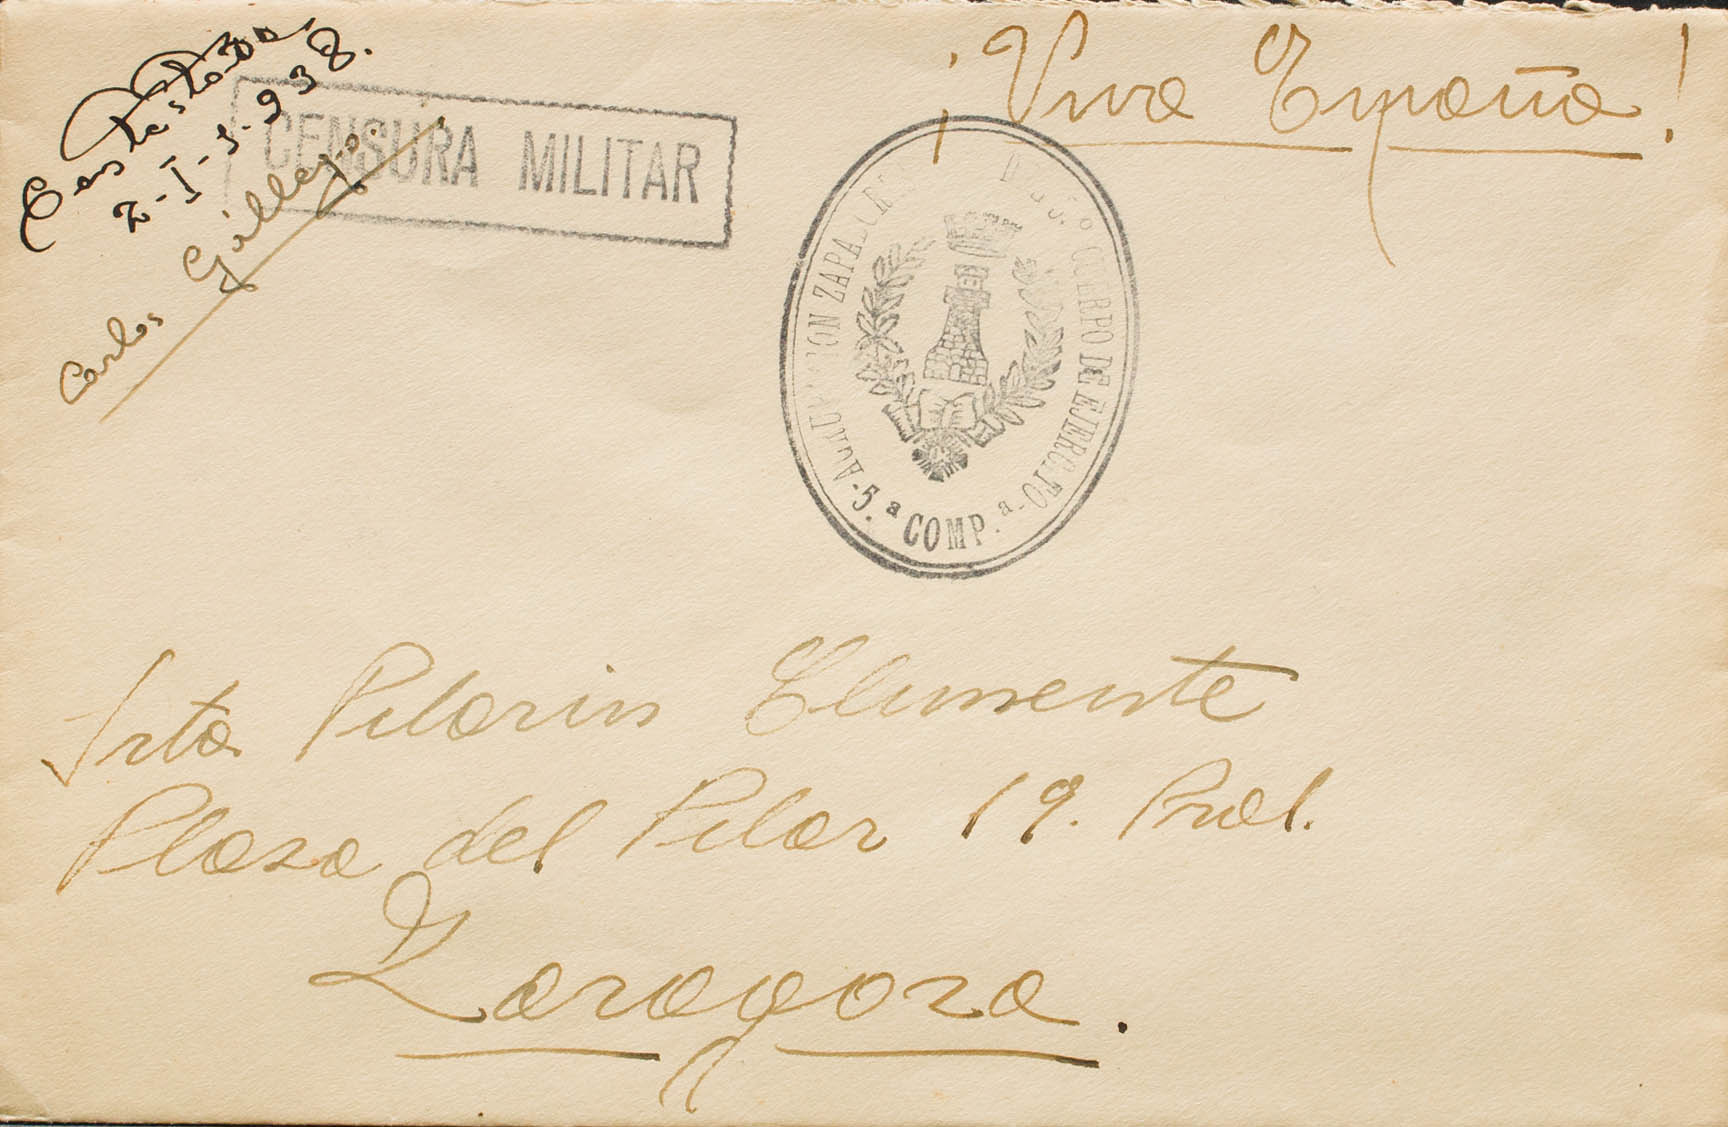 Contestada
2-I-1-938.
Carlos Gállego.
CENSURA MILITAR
¡Viva España!
AGRUPACION ZAPADORES DEL 5.º CUERPO DE EJERCITO
-5.ª COMP.ª-
Srta Pilarin Clemente
Plaza del Pilar 19. Pral.
Zaragoza.